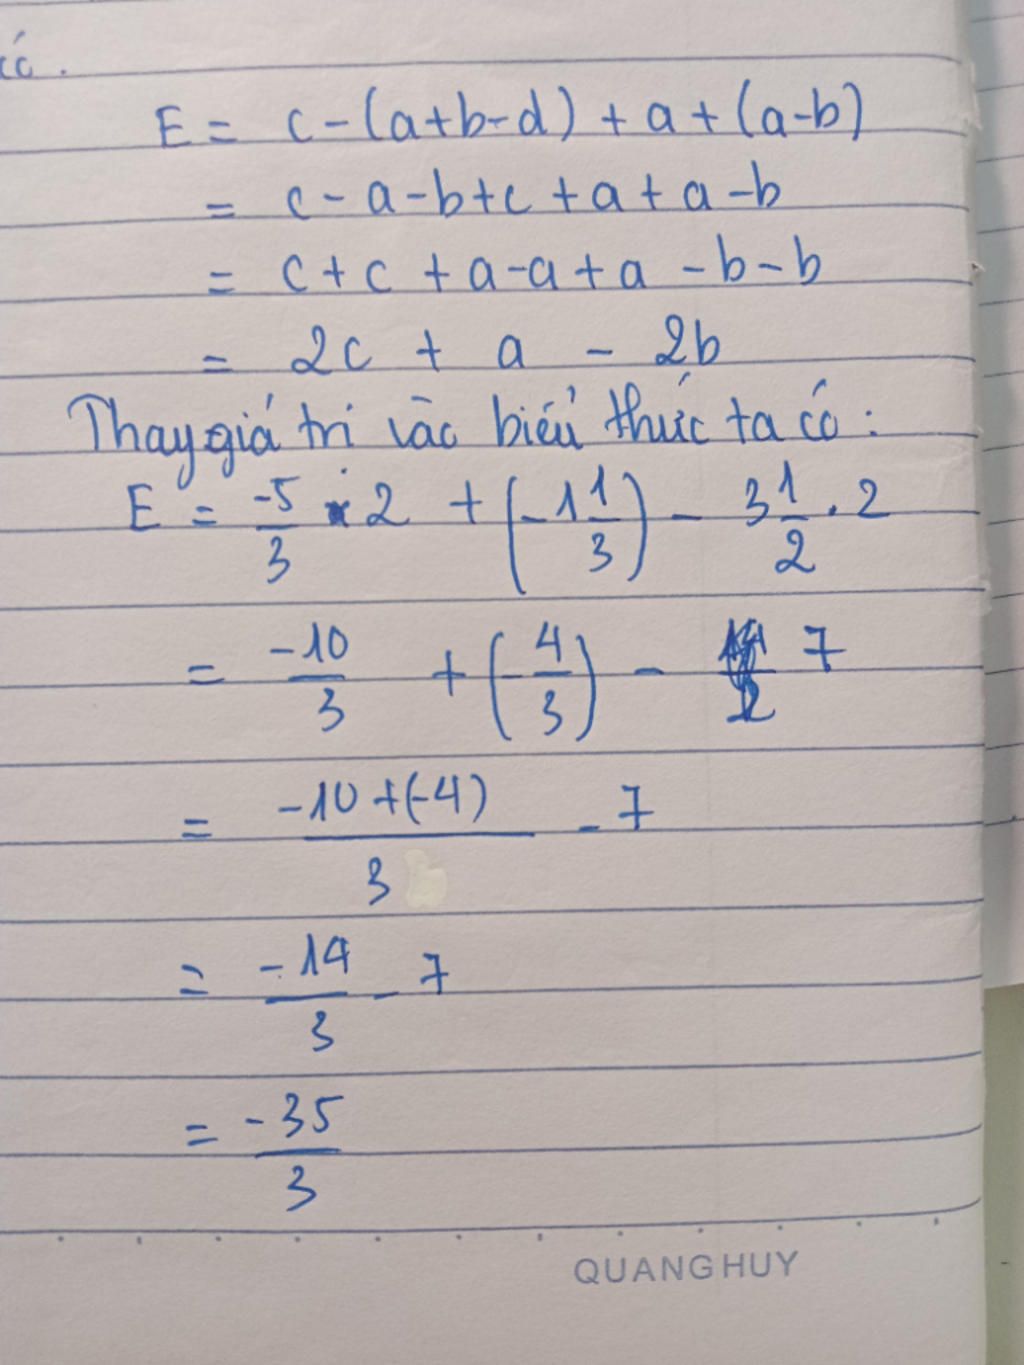 có.
E = c - (a+b-d) + a + (a-b)
= c - a - b + c + a + a - b
= c + c + a - a + a - b - b
= 2c + a - 2b
Thay giá trị vào biểu thức ta có:
E = -5/3 . 2 + (-1 1/3) - 3 1/2 . 2
= -10/3 + (-4/3) - 7
= -10 + (-4)/3 - 7
= -14/3 - 7
= -35/3
QUANG HUY